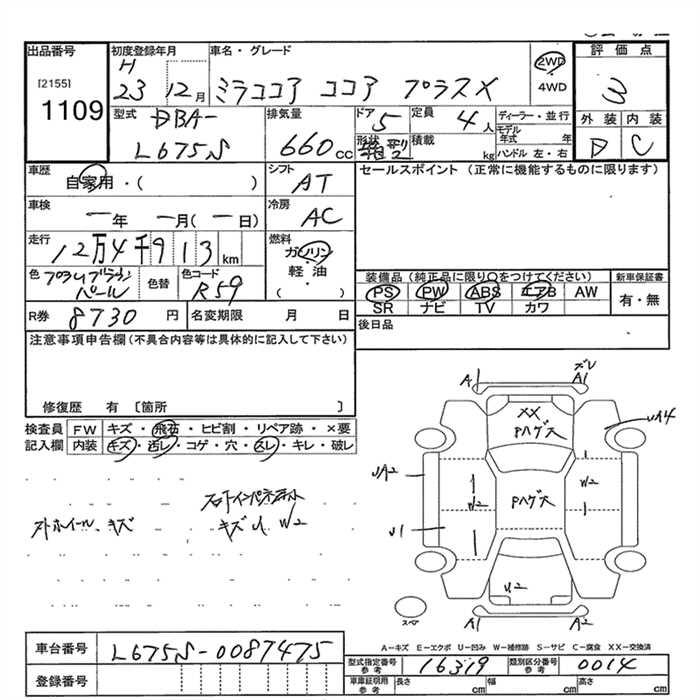 出品番号
[2155]
1109
初度登録年月
H
23 12月
車名・グレード
ミラココア ココア プラスX
2WD
4WD
評価点
3
外装 内装
D C
型式
DBA-
L675S
排気量
660cc
ドア
5
定員
4人
形状
積載
kg
ディーラー・並行
モデル
年式 年
ハンドル 左・右
車歴
自家用・( )
シフト
AT
セールスポイント(正常に機能するものに限ります)
車検
一年 一月(一日)
冷房
AC
走行
12万4千913km
燃料
ガソリン
軽油
( )
色
プラムブラウン
パール
色替
色コード
R59
装備品(純正品に限り○をつけてください)
PS PW ABS エアB AW
SR ナビ TV カワ
新車保証書
有・無
R券 8730円
名変期限 月 日
後日品
注意事項申告欄(不具合内容等は具体的に記入して下さい)
修復歴 有 〔箇所 〕
検査員 FW キズ・飛石・ヒビ割・リペア跡・×要
記入欄 内装 キズ・汚レ・コゲ・穴・スレ・キレ・破レ
フロントインパネ
キズ U W2
ホイール キズ
A1
ズレ
A1
XX
Pハゲ大
UA4
UA2
W2
W2
Pハゲ大
U1
U2
スペア
A1
A2
A－キズ E－エクボ U－凹み W－補修跡 S－サビ C－腐食 XX－交換済
車台番号 L675S-0087475
型式指定番号
参考
16319
類別区分番号
参考
0014
登録番号
車庫証明用
参考
長さ cm 幅 cm 高さ cm